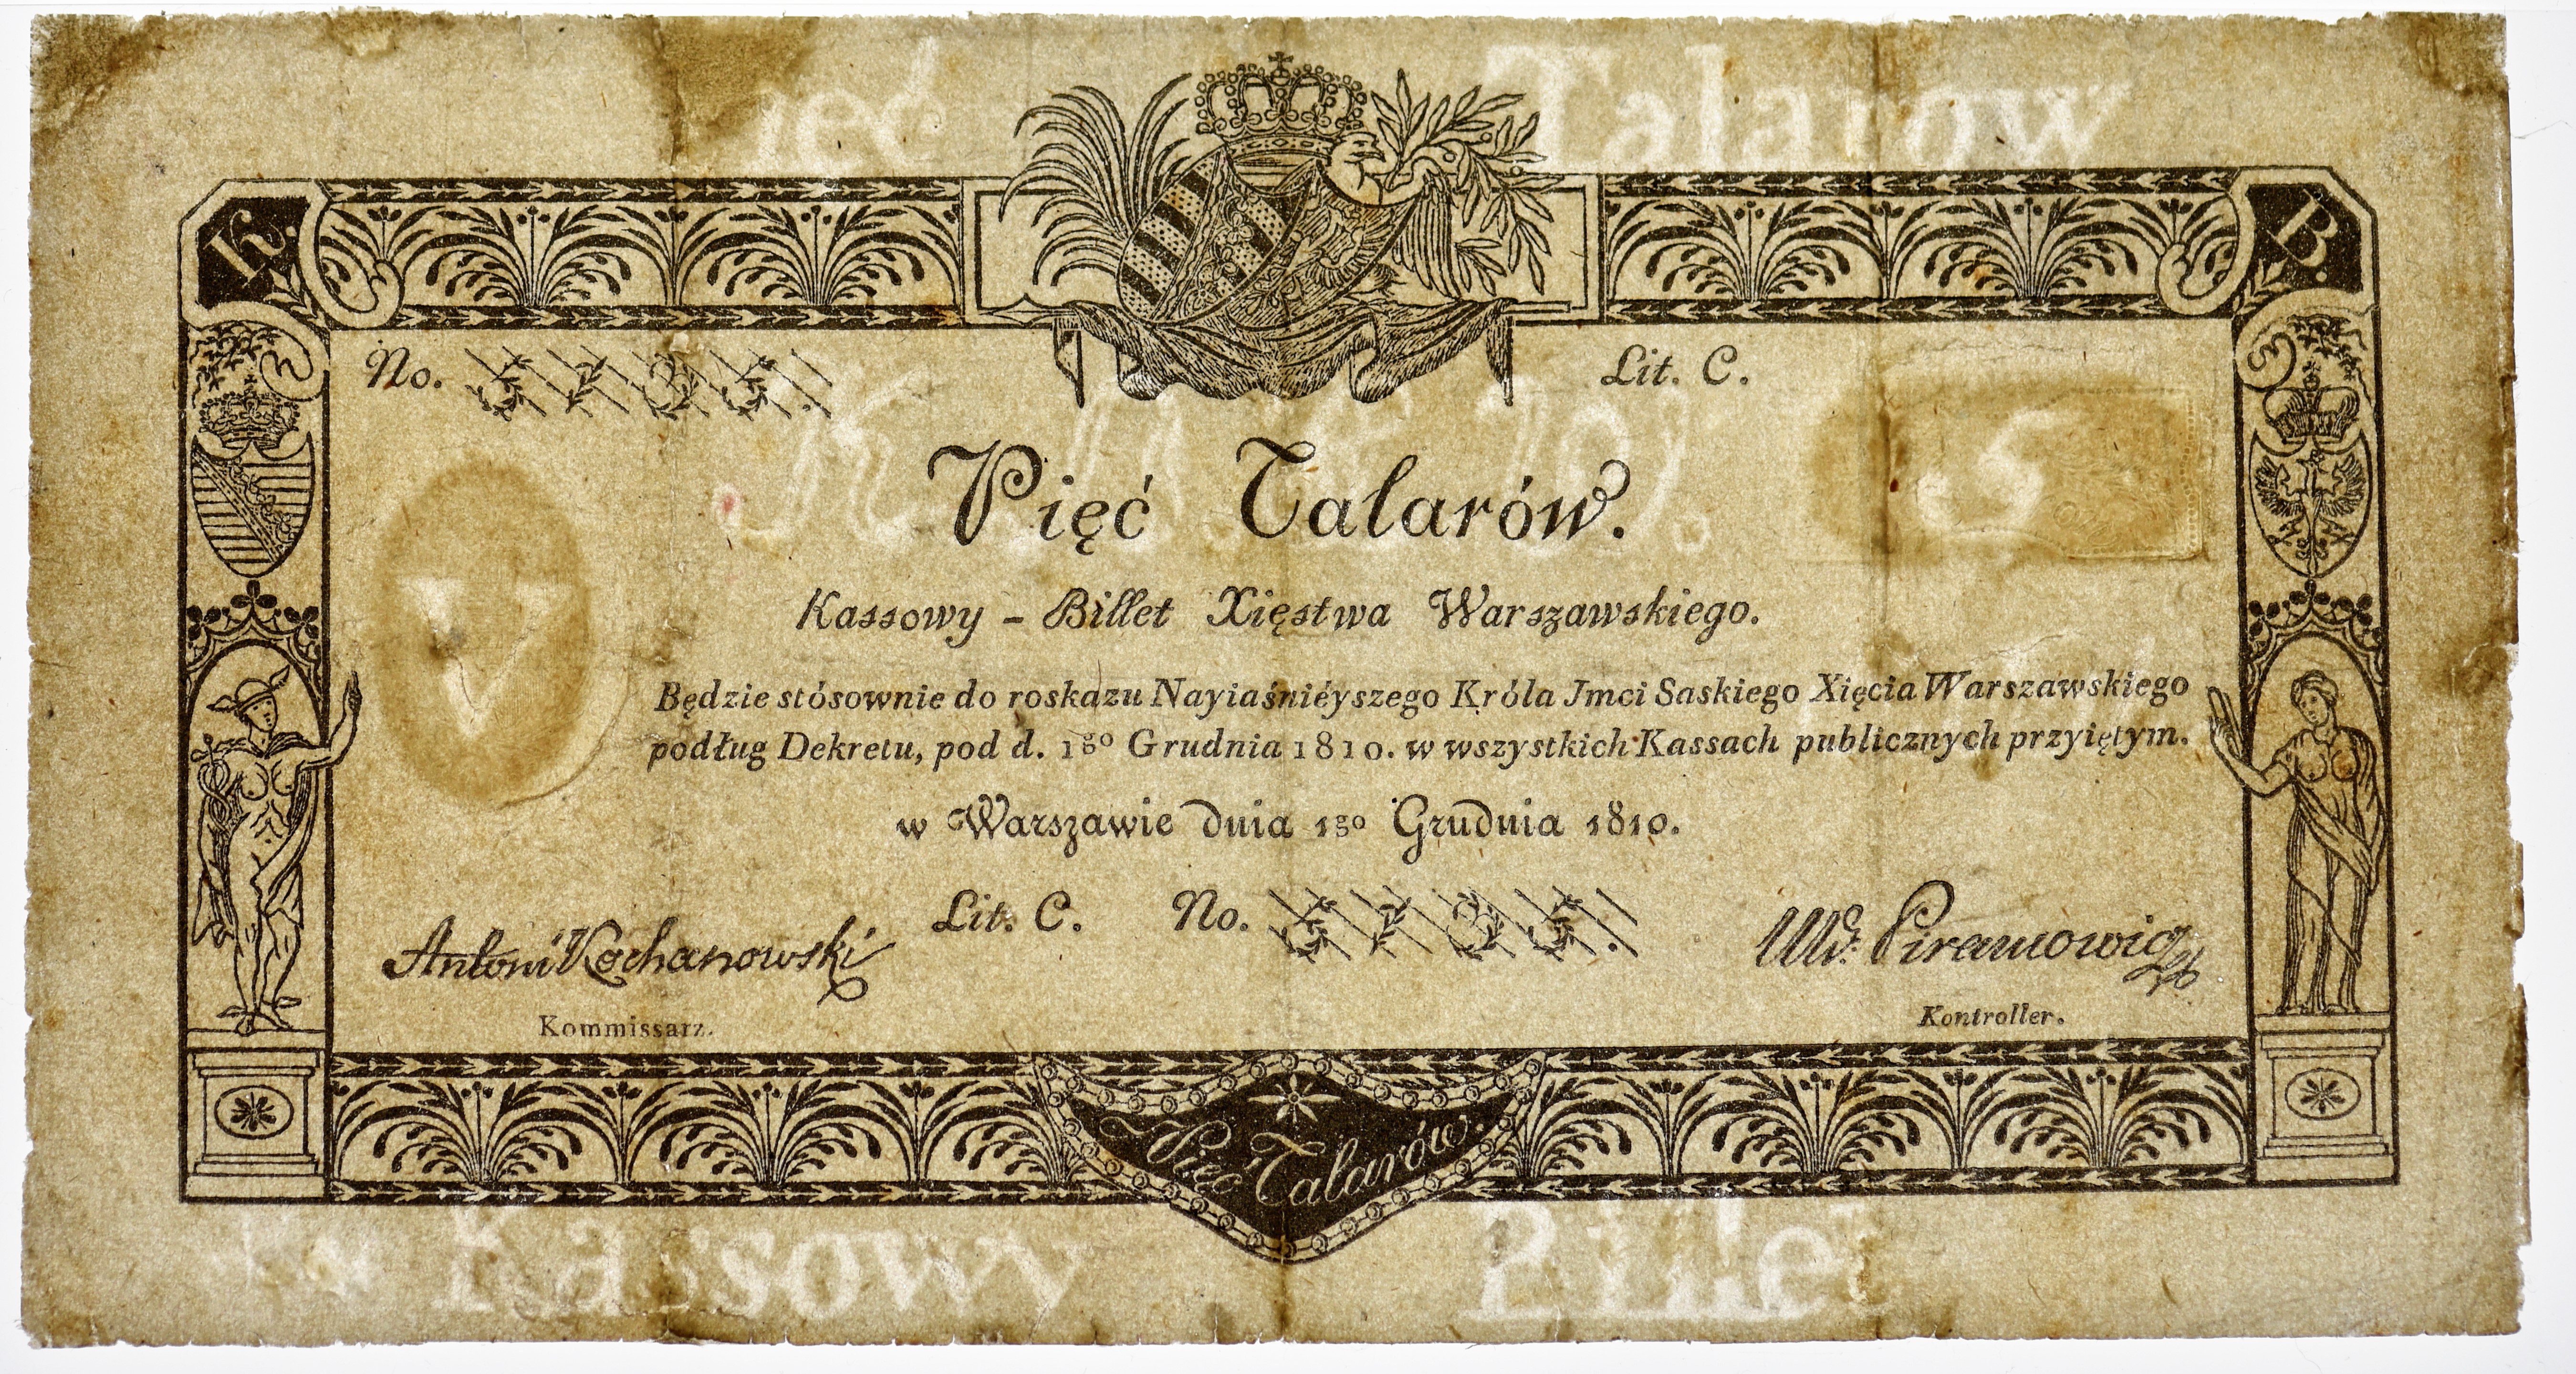 Talarow
K. B.
No. Lit. C.
Pięć Talarów.
Kassowy - Billet Xięstwa Warszawskiego.
Będzie stósownie do roskazu Nayiaśniéyszego Króla Jmci Saskiego Xięcia Warszawskiego
podług Dekretu, pod d. 1go Grudnia 1810. w wszystkich Kassach publicznych przyiętym.
w Warszawie dnia 1go Grudnia 1810.
Lit. C. No.
Antoni Kochanowski
Kommissarz.
Piramowicz
Kontroller.
Pięć Talarów.
Kassowy